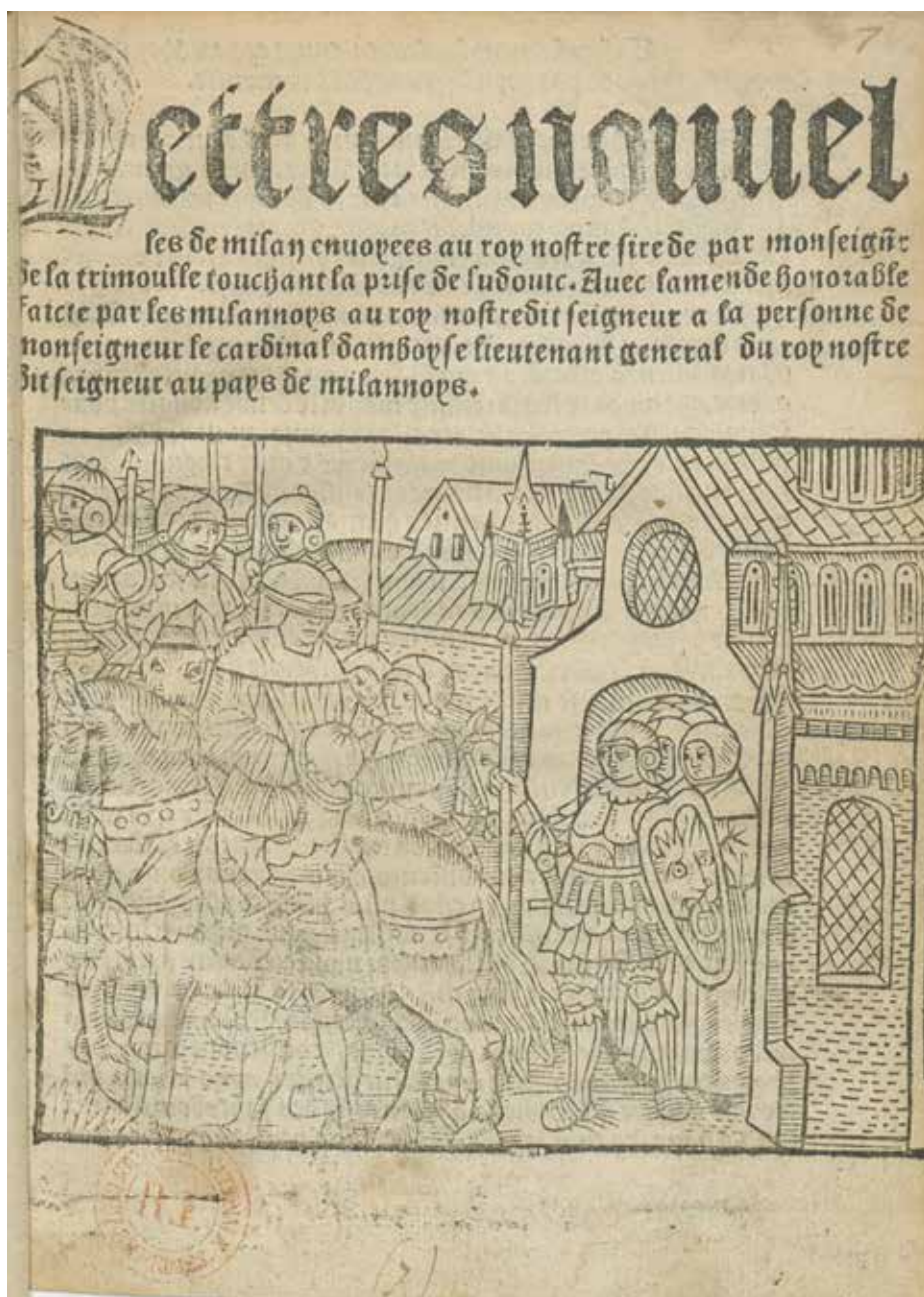 7
Lettres nouuel
les de milan enuoyees au roy nostre sire de par monseignr
de la trimoulle touchant la prise de ludouic. Auec lamende honorable
faicte par les milannoys au roy nostredit seigneur a la personne de
monseigneur le cardinal damboyse lieutenant general du roy nostre
dit seigneur au pays de milannoys.
(7)